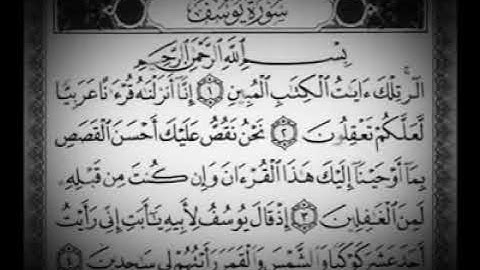 سُورَةُ يُوسُفَ
بِسْمِ ٱللَّهِ ٱلرَّحْمَٰنِ ٱلرَّحِيمِ
الٓرۚ تِلْكَ ءَايَٰتُ ٱلْكِتَٰبِ ٱلْمُبِينِ ١ إِنَّآ أَنزَلْنَٰهُ قُرْءَٰنًا عَرَبِيًّا
لَّعَلَّكُمْ تَعْقِلُونَ ٢ نَحْنُ نَقُصُّ عَلَيْكَ أَحْسَنَ ٱلْقَصَصِ
بِمَآ أَوْحَيْنَآ إِلَيْكَ هَٰذَا ٱلْقُرْءَانَ وَإِن كُنتَ مِن قَبْلِهِۦ
لَمِنَ ٱلْغَٰفِلِينَ ٣ إِذْ قَالَ يُوسُفُ لِأَبِيهِ يَٰٓأَبَتِ إِنِّي رَأَيْتُ
أَحَدَ عَشَرَ كَوْكَبًا وَٱلشَّمْسَ وَٱلْقَمَرَ رَأَيْتُهُمْ لِي سَٰجِدِينَ ٤